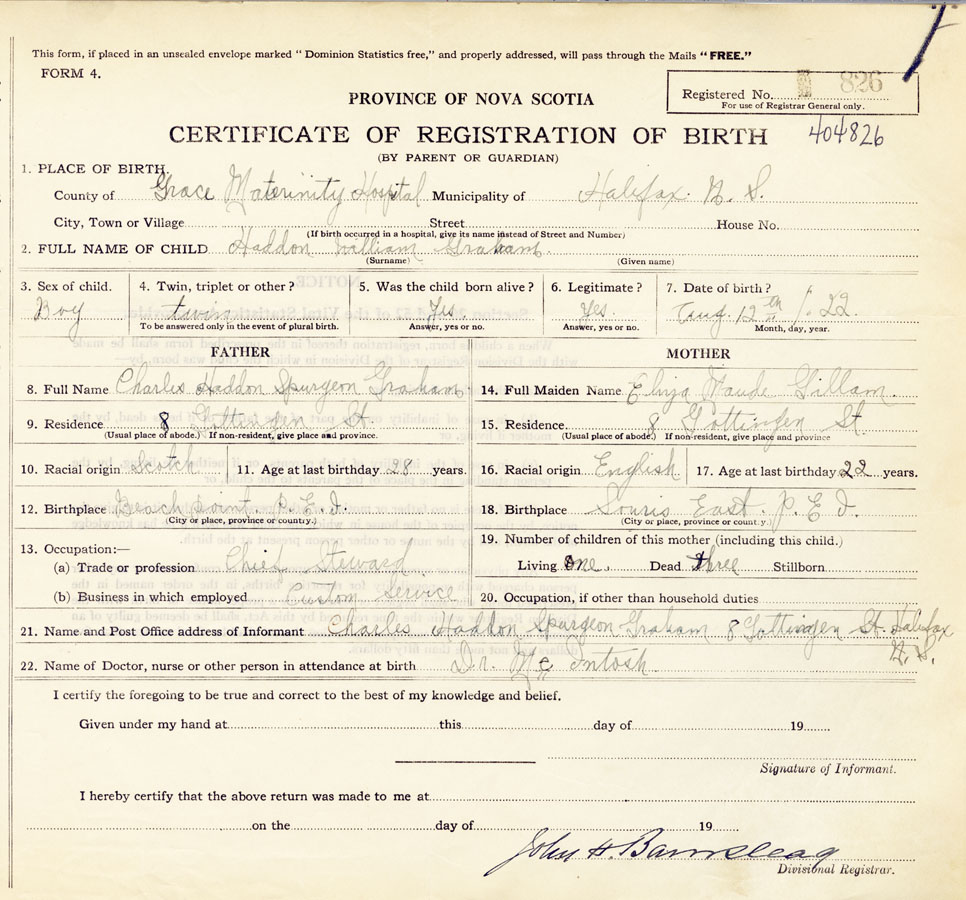 This form, if placed in an unsealed envelope marked "Dominion Statistics free," and properly addressed, will pass through the Mails "FREE."
FORM 4.
Registered No. 826
For use of Registrar General only.
PROVINCE OF NOVA SCOTIA
CERTIFICATE OF REGISTRATION OF BIRTH 404826
(BY PARENT OR GUARDIAN)
1. PLACE OF BIRTH,
County of Grace Materninity Hospital Municipality of Halifax N. S.
City, Town or Village Street House No.
(If birth occurred in a hospital, give its name instead of Street and Number)
2. FULL NAME OF CHILD Haddon William Graham.
(Surname) (Given name)
3. Sex of child. 4. Twin, triplet or other? 5. Was the child born alive? 6. Legitimate? 7. Date of birth?
Boy twin Yes Yes. Aug. 12th 22
To be answered only in the event of plural birth. Answer, yes or no. Answer, yes or no. Month, day, year.
FATHER MOTHER
8. Full Name Charles Haddon Spurgeon Graham. 14. Full Maiden Name Eliza Maude Gillam.
9. Residence 8 Gottingen St. 15. Residence 8 Gottingen St
(Usual place of abode.) If non-resident, give place and province. (Usual place of abode.) If non-resident, give place and province
10. Racial origin Scotch 11. Age at last birthday 28 years. 16. Racial origin English 17. Age at last birthday 22 years.
12. Birthplace Beach Point P. E. I. 18. Birthplace Souris East. P. E I.
(City or place, province or country.) (City or place, province or country.)
13. Occupation:— 19. Number of children of this mother (including this child.)
(a) Trade or profession Chief Steward Living one. Dead three Stillborn
(b) Business in which employed Custom Service 20. Occupation, if other than household duties
21. Name and Post Office address of Informant Charles Haddon Spurgeon Graham 8 Gottingen St. Halifax
N. S.
22. Name of Doctor, nurse or other person in attendance at birth Dr. Mc Intosh
I certify the foregoing to be true and correct to the best of my knowledge and belief.
Given under my hand at this day of 19
Signature of Informant.
I hereby certify that the above return was made to me at
on the day of 19
John H. Barnstead
Divisional Registrar.